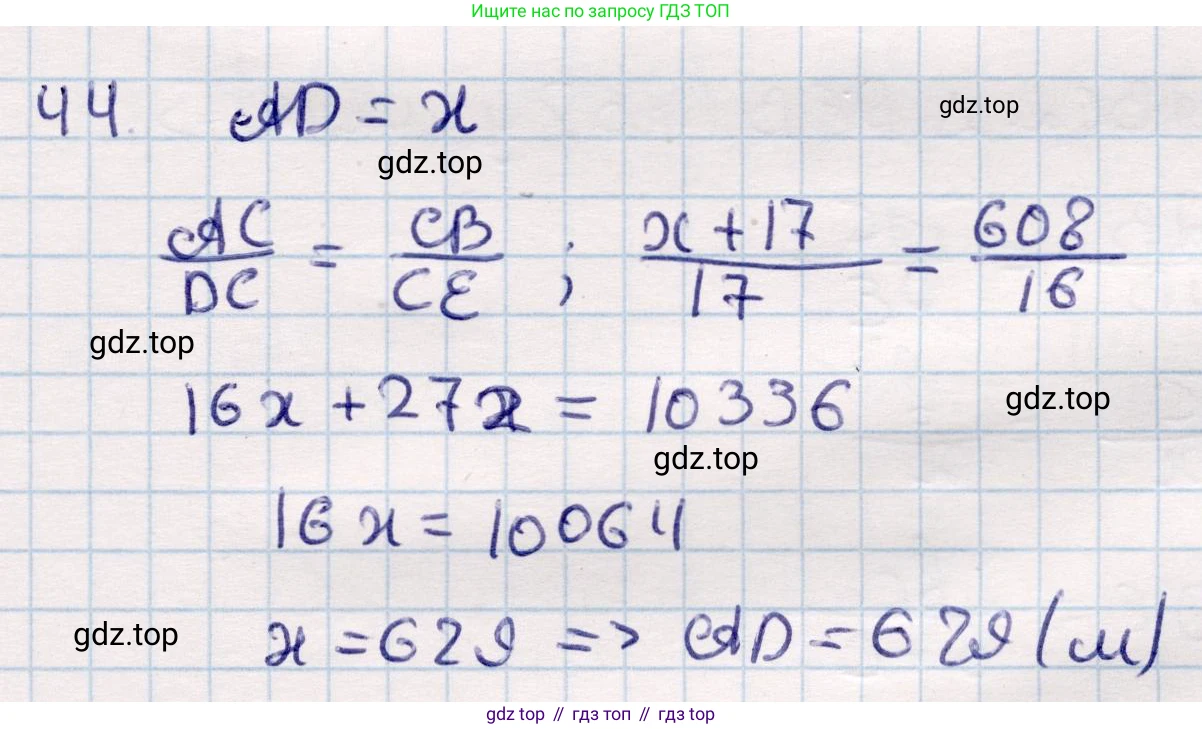 Ищите нас по запросу ГДЗ ТОП
44. AD = x
gdz.top
gdz.top
AC/DC = CB/CE ; x + 17/17 = 608/16
gdz.top
16x + 272 = 10336
gdz.top
gdz.top
16x = 10064
gdz.top
x = 629 => AD = 629 (м)
gdz top // гдз топ // гдз top